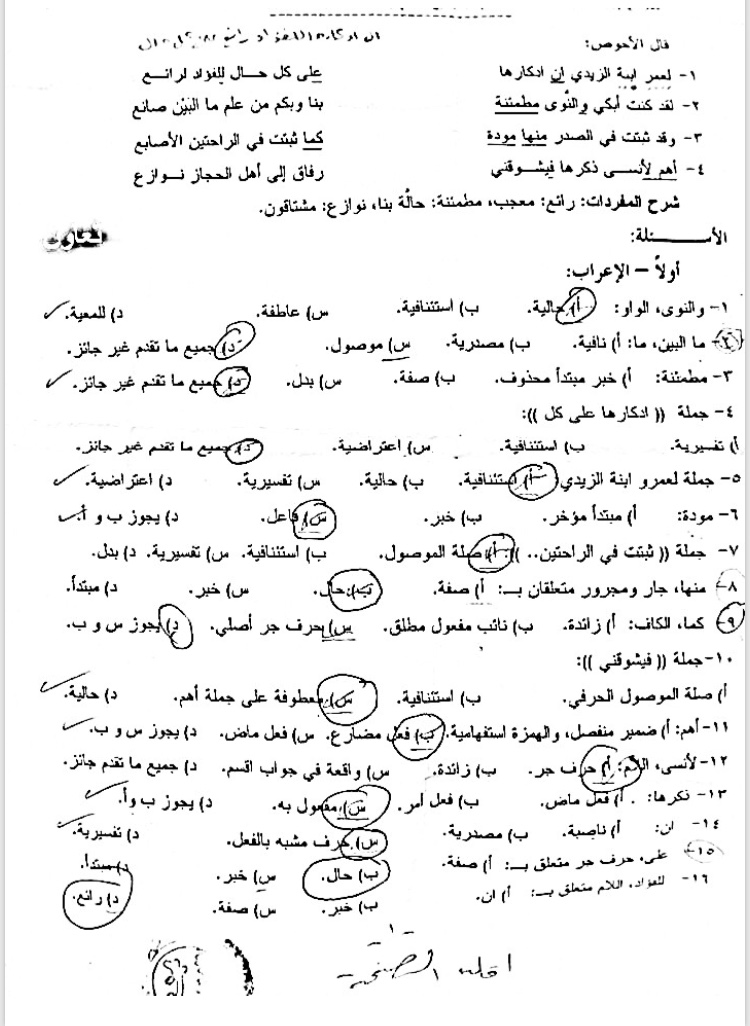 قال الأحوص:
١- لعمر ابنة الزيدي إن ادكارها على كل حال للفؤاد لرائع
٢- لقد كنت أبكي والنّوى مطمئنة بنا وبكم من علم ما البَيْن صانع
٣- وقد ثبتت في الصدر منها مودة كما ثبتت في الراحتين الأصابع
٤- أهم لأنسى ذكرها فيشوقني رفاق إلى أهل الحجاز نوازع
شرح المفردات: رائع: معجب، مطمئنة: حالّة بنا، نوازع: مشتاقون.
الأسئلة:
أولاً – الإعراب:
١- والنوى، الواو: أ) حالية. ب) استئنافية. س) عاطفة. د) للمعية.
٢- ما البين، ما: أ) نافية. ب) مصدرية. س) موصول. د) جميع ما تقدم غير جائز.
٣- مطمئنة: أ) خبر مبتدأ محذوف. ب) صفة. س) بدل. د) جميع ما تقدم غير جائز.
٤- جملة (( ادكارها على كل )):
أ) تفسيرية. ب) استئنافية. س) اعتراضية. د) جميع ما تقدم غير جائز.
٥- جملة لعمرو ابنة الزيدي أ) استئنافية. ب) حالية. س) تفسيرية. د) اعتراضية.
٦- مودة: أ) مبتدأ مؤخر. ب) خبر. س) فاعل. د) يجوز ب و أ.
٧- جملة (( ثبتت في الراحتين.. )) أ) صلة الموصول. ب) استئنافية. س) تفسيرية. د) بدل.
٨- منها، جار ومجرور متعلقان بـ: أ) صفة. ب) حال. س) خبر. د) مبتدأ.
٩- كما، الكاف: أ) زائدة. ب) نائب مفعول مطلق. س) حرف جر أصلي. د) يجوز س و ب.
١٠- جملة (( فيشوقني )):
أ) صلة الموصول الحرفي. ب) استئنافية. س) معطوفة على جملة أهم. د) حالية.
١١- أهم: أ) ضمير منفصل، والهمزة استفهامية. ب) فعل مضارع. س) فعل ماض. د) يجوز س و ب.
١٢- لأنسى، اللام: أ) حرف جر. ب) زائدة. س) واقعة في جواب القسم. د) جميع ما تقدم جائز.
١٣- ذكرها: أ) فعل ماض. ب) فعل أمر. س) مفعول به. د) يجوز ب وأ.
١٤- ان: أ) ناصبة. ب) مصدرية. س) حرف مشبه بالفعل. د) تفسيرية.
١٥- على، حرف جر متعلق بـ: أ) صفة. ب) حال. س) خبر. د) مبتدأ.
١٦- للفؤاد، اللام متعلق بـ: أ) ان. ب) خبر. س) صفة. د) رائع.
-١-
اقلب الصفحة